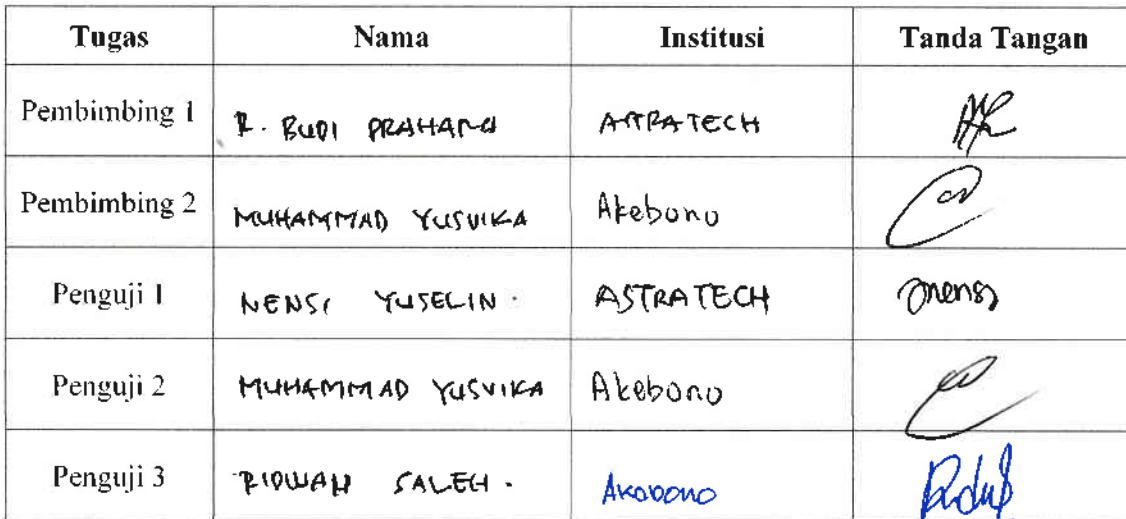 Tugas Nama Institusi Tanda Tangan
Pembimbing 1 R. BUDI ASTRATECH
Pembimbing 2 MUHAMMAD YUSVIKA Akebono
Penguji 1 NENSI YUSELIN. ASTRATECH nensi
Penguji 2 MUHAMMAD YUSVIKA Akebono
Penguji 3 RIDWAN SALEH. Akebono